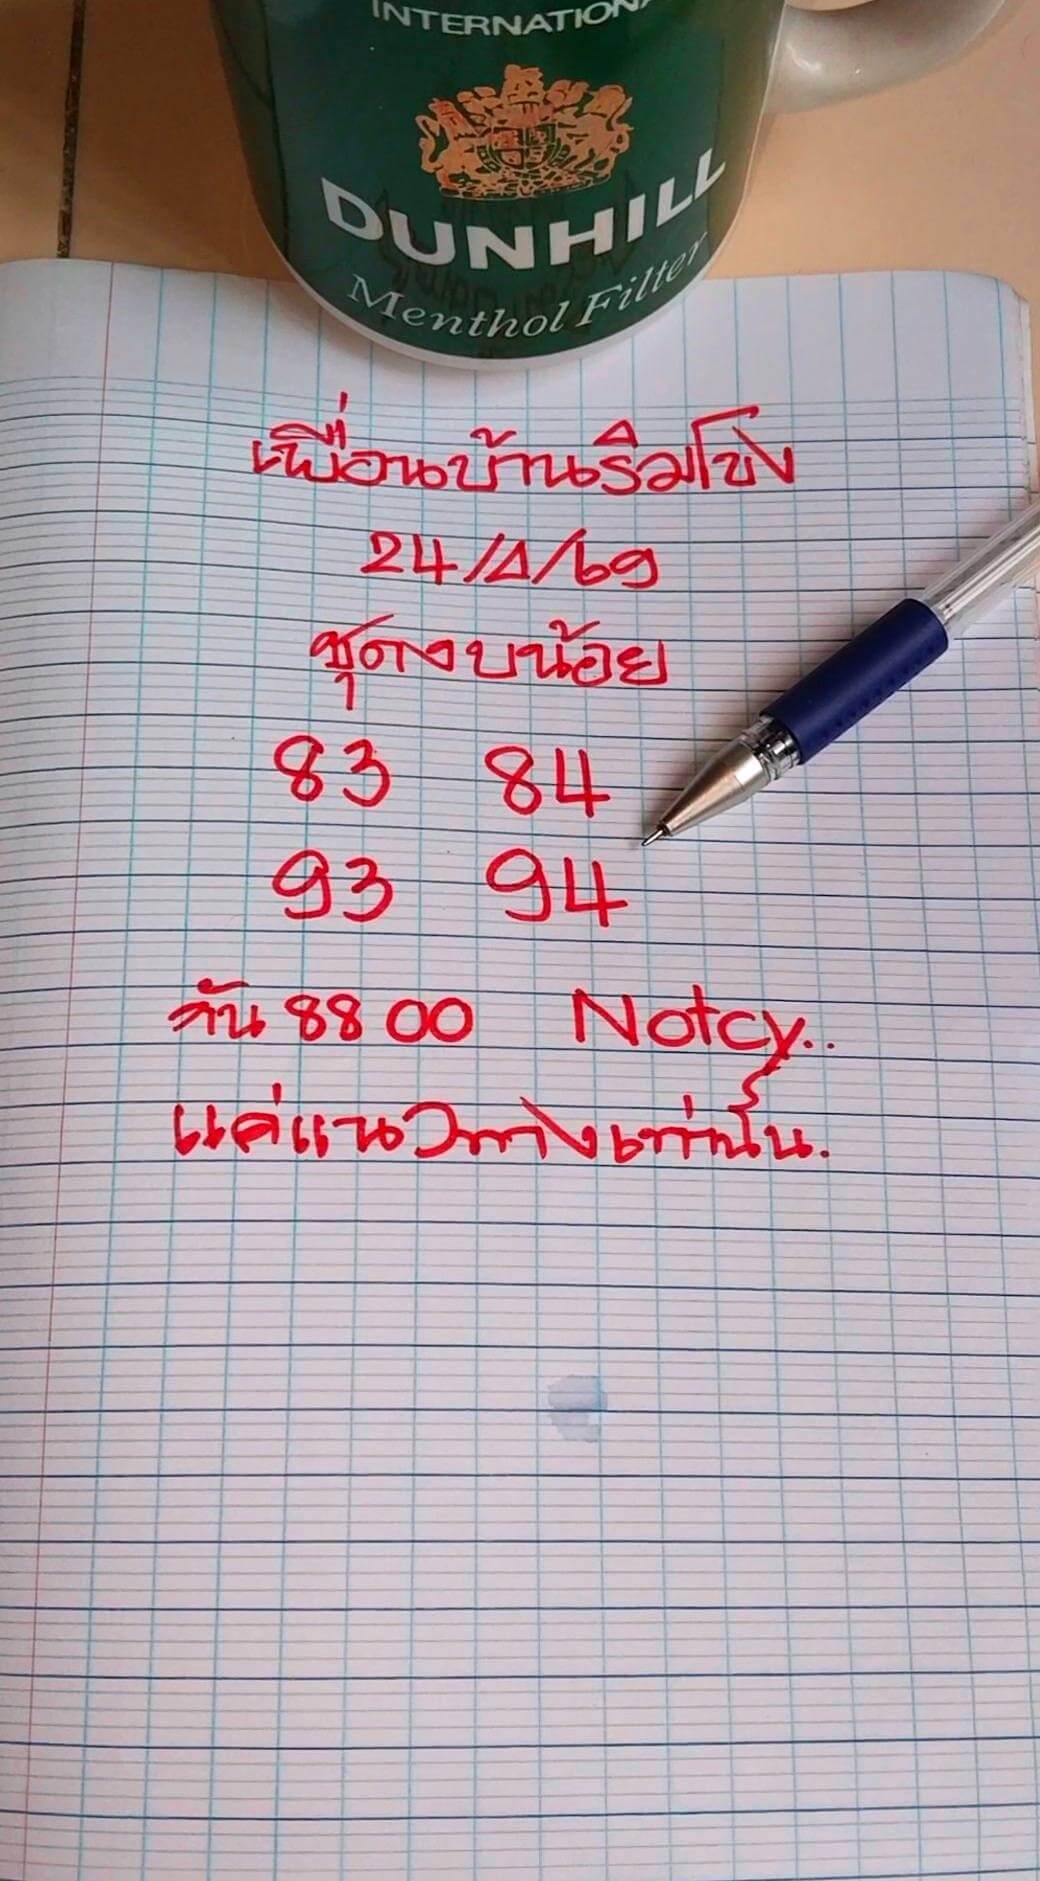 INTERNATIONA
DUNHILL
Menthol Filter
เพื่อนบ้านริมโขง
24/Δ/69
ชุดงบน้อย
83 84
93 94
กัน 88 00 Notcy..
แค่แนวทางเท่านั้น.